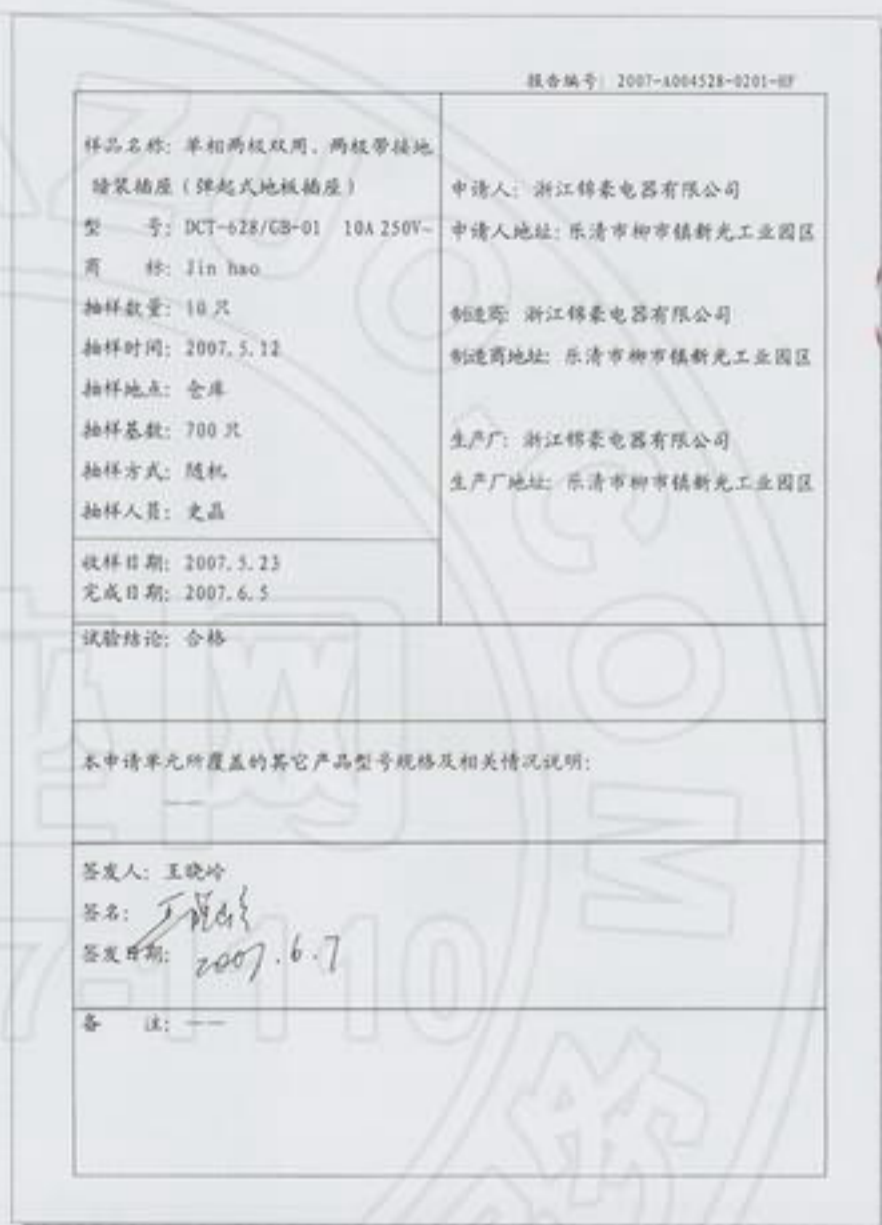 报告编号: 2007-A004528-0201-HF
样品名称: 单相两极双用、两极带接地
暗装插座(弹起式地板插座)
型 号: DCT-628/GB-01 10A 250V~
商 标: Jin hao
抽样数量: 10 只
抽样时间: 2007.5.12
抽样地点: 仓库
抽样基数: 700 只
抽样方式: 随机
抽样人员: 史晶
收样日期: 2007.5.23
完成日期: 2007.6.5
申请人: 浙江锦豪电器有限公司
申请人地址: 乐清市柳市镇新光工业园区
制造商: 浙江锦豪电器有限公司
制造商地址: 乐清市柳市镇新光工业园区
生产厂: 浙江锦豪电器有限公司
生产厂地址: 乐清市柳市镇新光工业园区
试验结论: 合格
本申请单元所覆盖的其它产品型号规格及相关情况说明:
——
签发人: 王晓岭
签名: 王晓岭
签发日期: 2007.6.7
备 注: ——